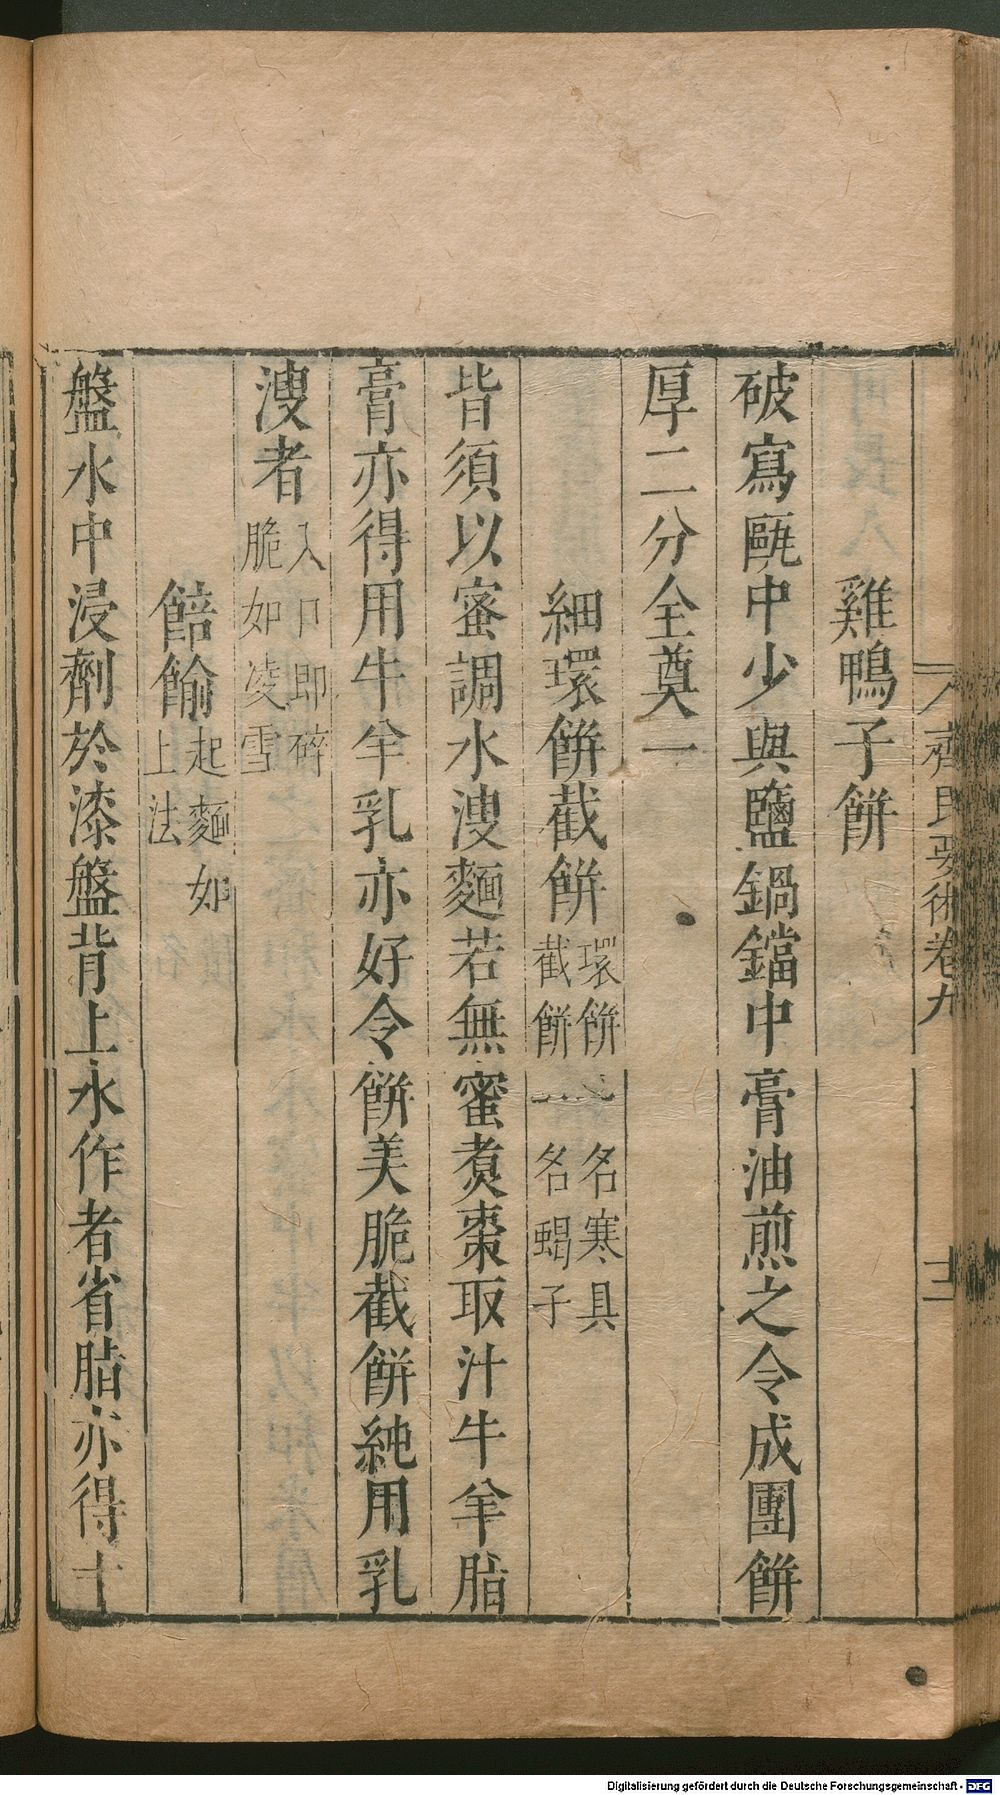 齊民要術卷九
十二
雞鴨子餅
破寫甌中少與鹽鍋鐺中膏油煎之令成團餅
厚二分全奠一
細環餅截餅環餅一名寒具截餅一名蝎子
皆須以蜜調水溲麵若無蜜煑棗取汁牛羊脂
膏亦得用牛羊乳亦好令餅美脆截餅純用乳
溲者入口即碎脆如凌雪
餢䬳起麵如上法
盤水中浸劑於漆盤背上水作者省脂亦得十
Digitalisierung gefördert durch die Deutsche Forschungsgemeinschaft - DFG